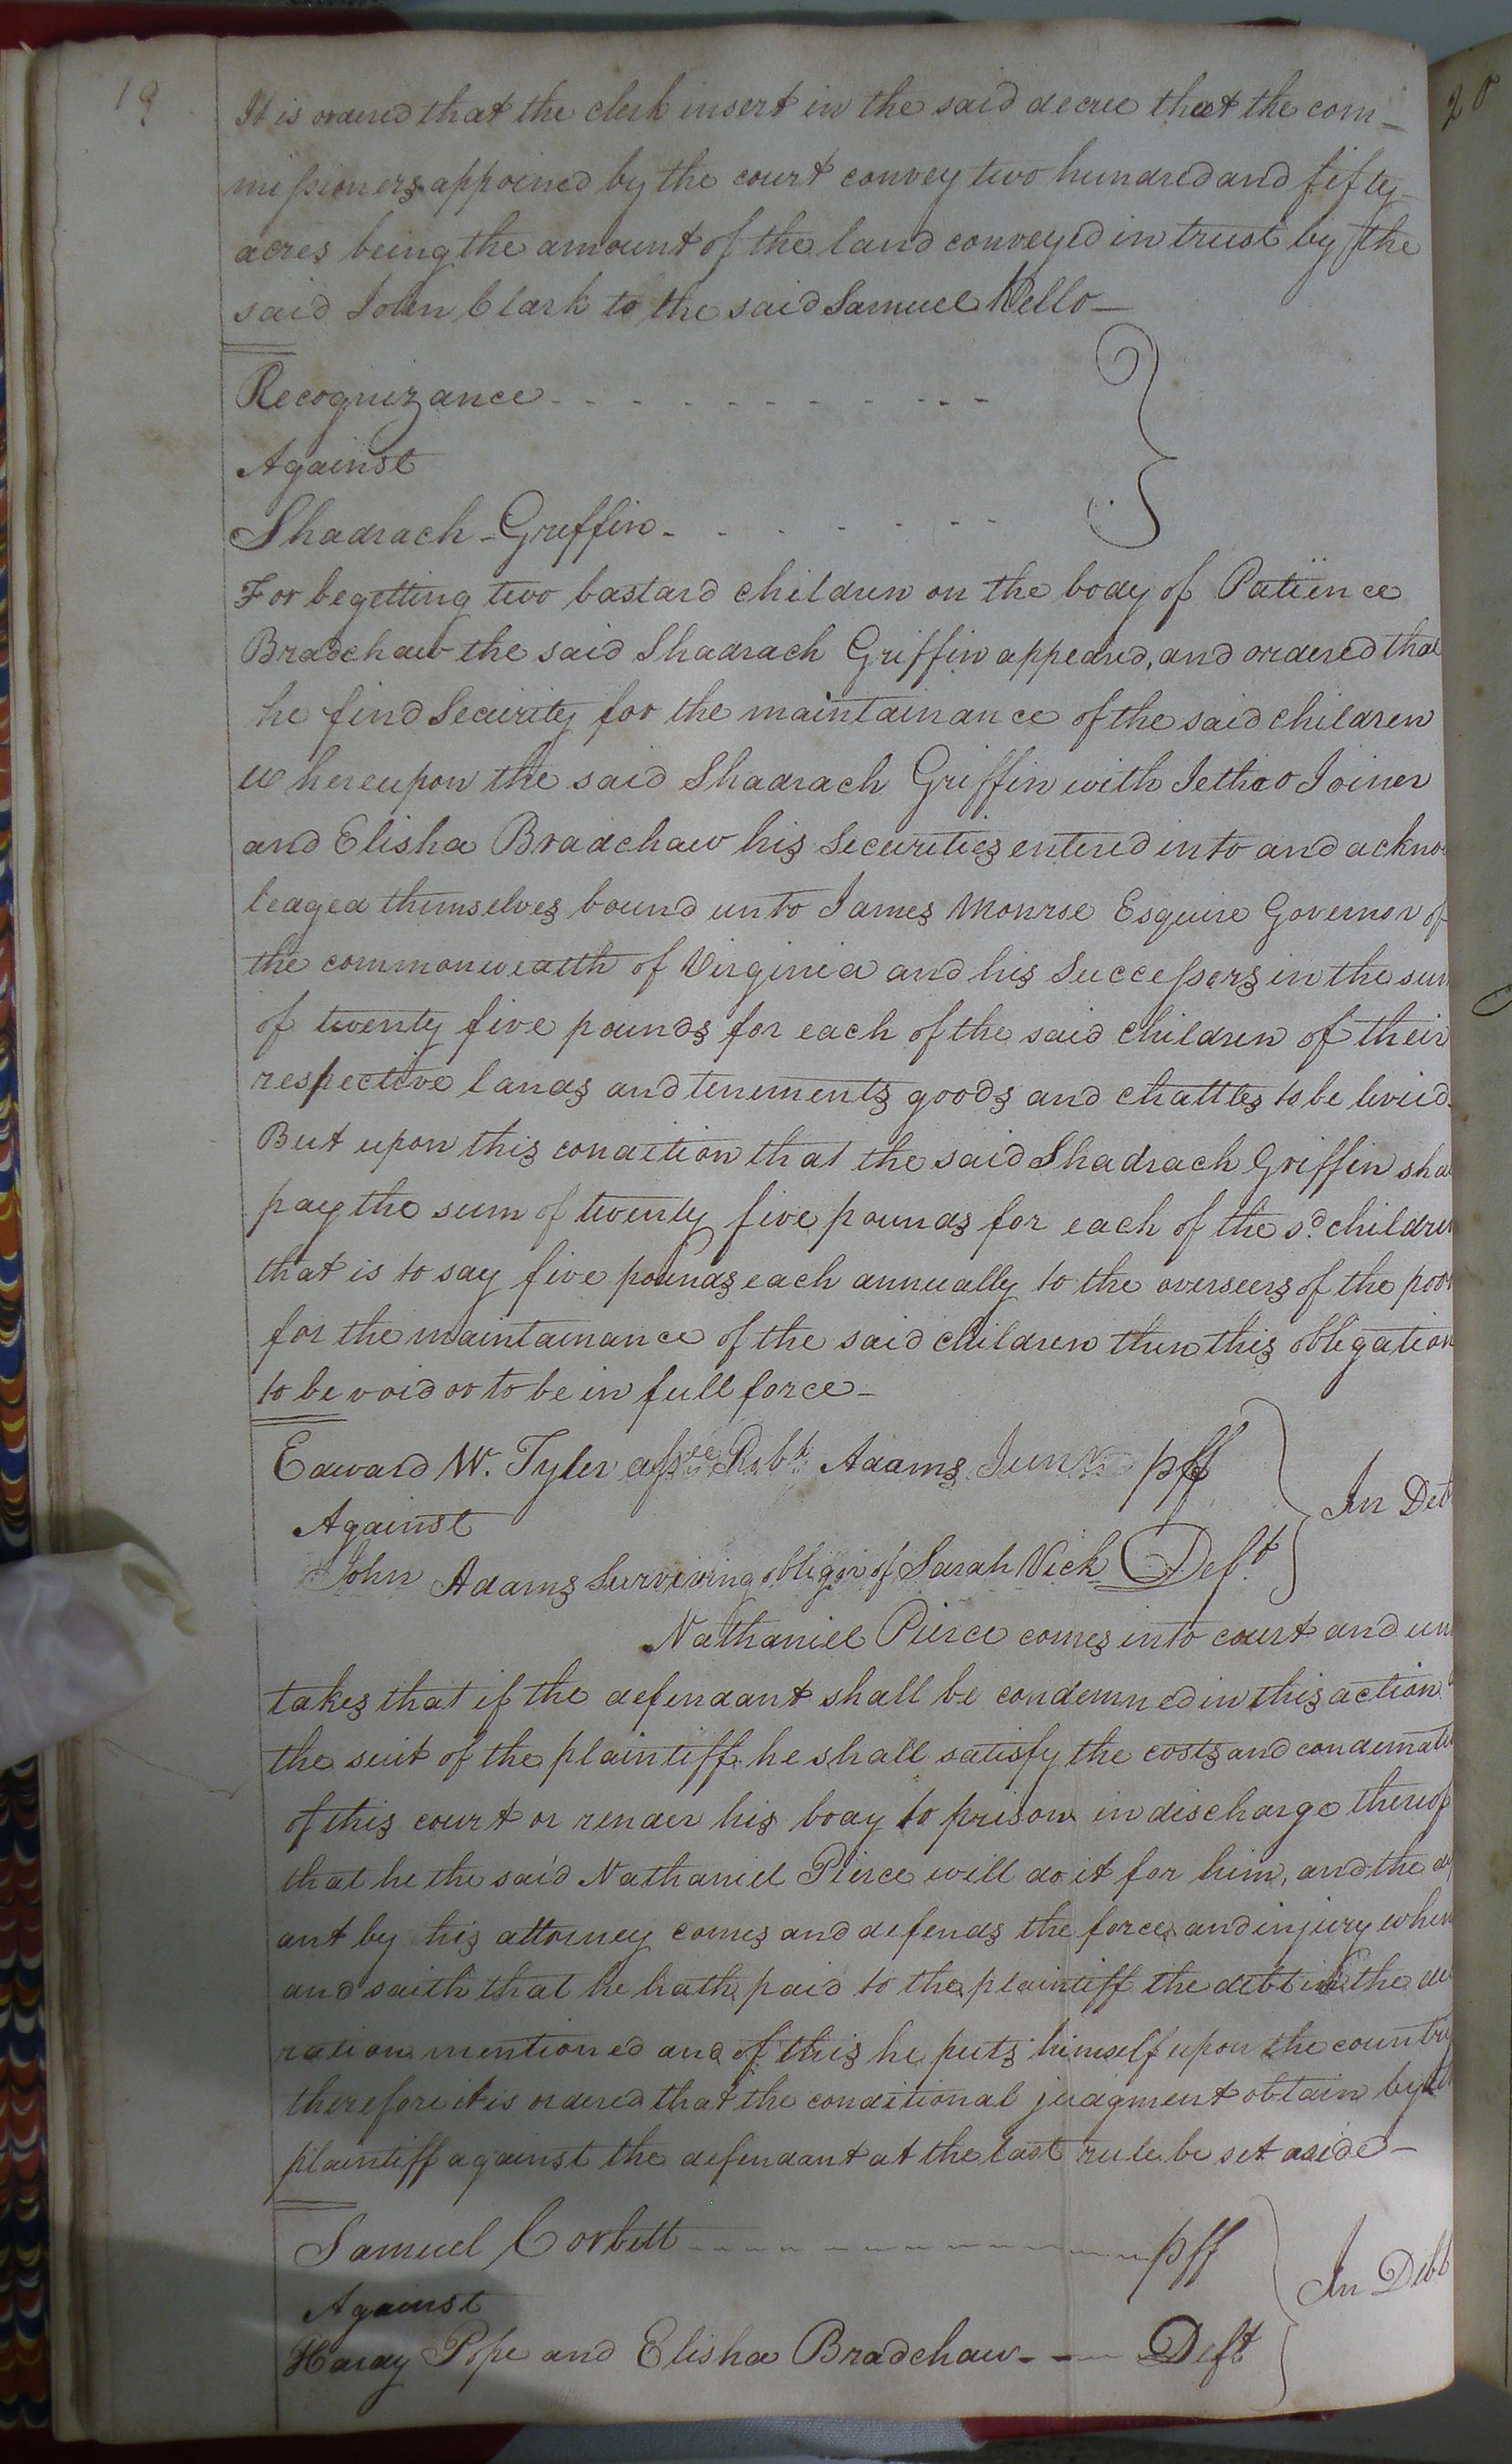 19
It is ordered that the clerk insert in the said decree that the com-
missioners appoined by the court convey two hundred and fifty
acres being the amount of the land conveyed in trust by the
said John Clark to the said Samuel Kello-
Recognizance
Against
Shadrach Griffin
For begetting two bastard children on the body of Patience
Bradchaw the said Shadrach Griffin appeared, and ordered that
he find Security for the maintainance of the said children
whereupon the said Shadrach Griffin with Jethro Joiner
and Elisha Bradchaw his Securities entered into and acknow
ledged themselves bound unto James Monroe Esquire Governor of
the commonwealth of Virginia and his Successors in the sum
of twenty five pounds for each of the said children of their
respective lands and tenements goods and chattles to be levied.
But upon this condition that the said Shadrach Griffin sha
pay the sum of twenty five pounds for each of the sd. children
that is to say five pounds each annually to the overseers of the poor
for the maintainance of the said children then this obligation
to be void or to be in full force-
Edward W. Tyler assee Robt. Adams Junr pff
In Deb
Against
John Adams Surviving obligor of Sarah Vick Deft.
Nathaniel Pierce comes into court and un
takes that if the defendant shall be condemned in this action
the suit of the plaintiff he shall satisfy the costs and condemnati
of this court or render his body to prison in discharge thereof
that he the said Nathaniel Pierce will do it for him, and the d
ant by his attorney comes and defends the force and injury when
and saith that he hath paid to the plaintiff the debt in the de
ration mentioned and of this he puts himself upon the country
therefore it is ordered that the conditional judgment obtain by th
plaintiff against the defendant at the last rule be set aside-
Samuel Corbett pff
In Debt
Against
Harday Pope and Elisha Bradchaw Deft
20